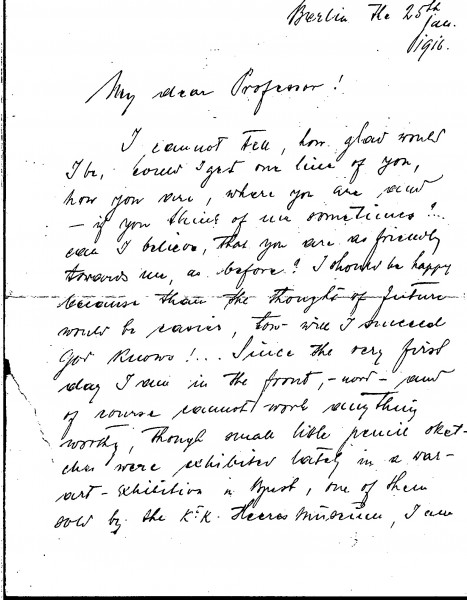 Berlin the 25th
jan.
1916.
My dear Professor!
I cannot tell, how glad would
I be, could I get one line of you,
how you are, where you are and
– if you think of me sometimes?..
can I believe, that you are as friendly
towards me, as before? I should be happy
because than the thought of future
would be easier, how will I succeed
God knows!... Since the very first
day I am in the front, – nord – and
of course cannot work anything
worthy, though small little pencil sket-
ches were exhibited lately in a war-
art-exhibition in Bpest, one of them
sold by the K.K. Heeres Museum, I am